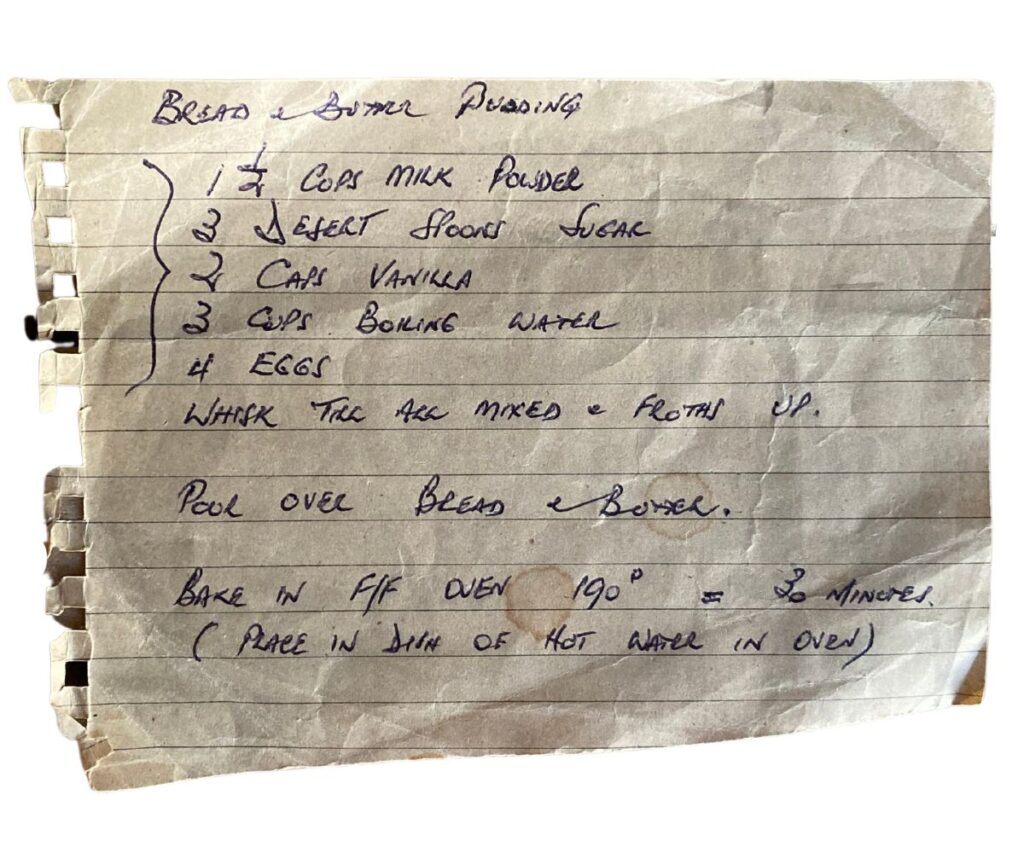 BREAD & BUTTER PUDDING
1 1/2 CUPS MILK POWDER
3 DESERT SPOONS SUGAR
2 CAPS VANILLA
3 CUPS BOILING WATER
4 EGGS
WHISK TILL ALL MIXED & FROTHS UP.
POUR OVER BREAD & BUTTER.
BAKE IN F/F OVEN 190° = 30 MINUTES.
( PLACE IN DISH OF HOT WATER IN OVEN)